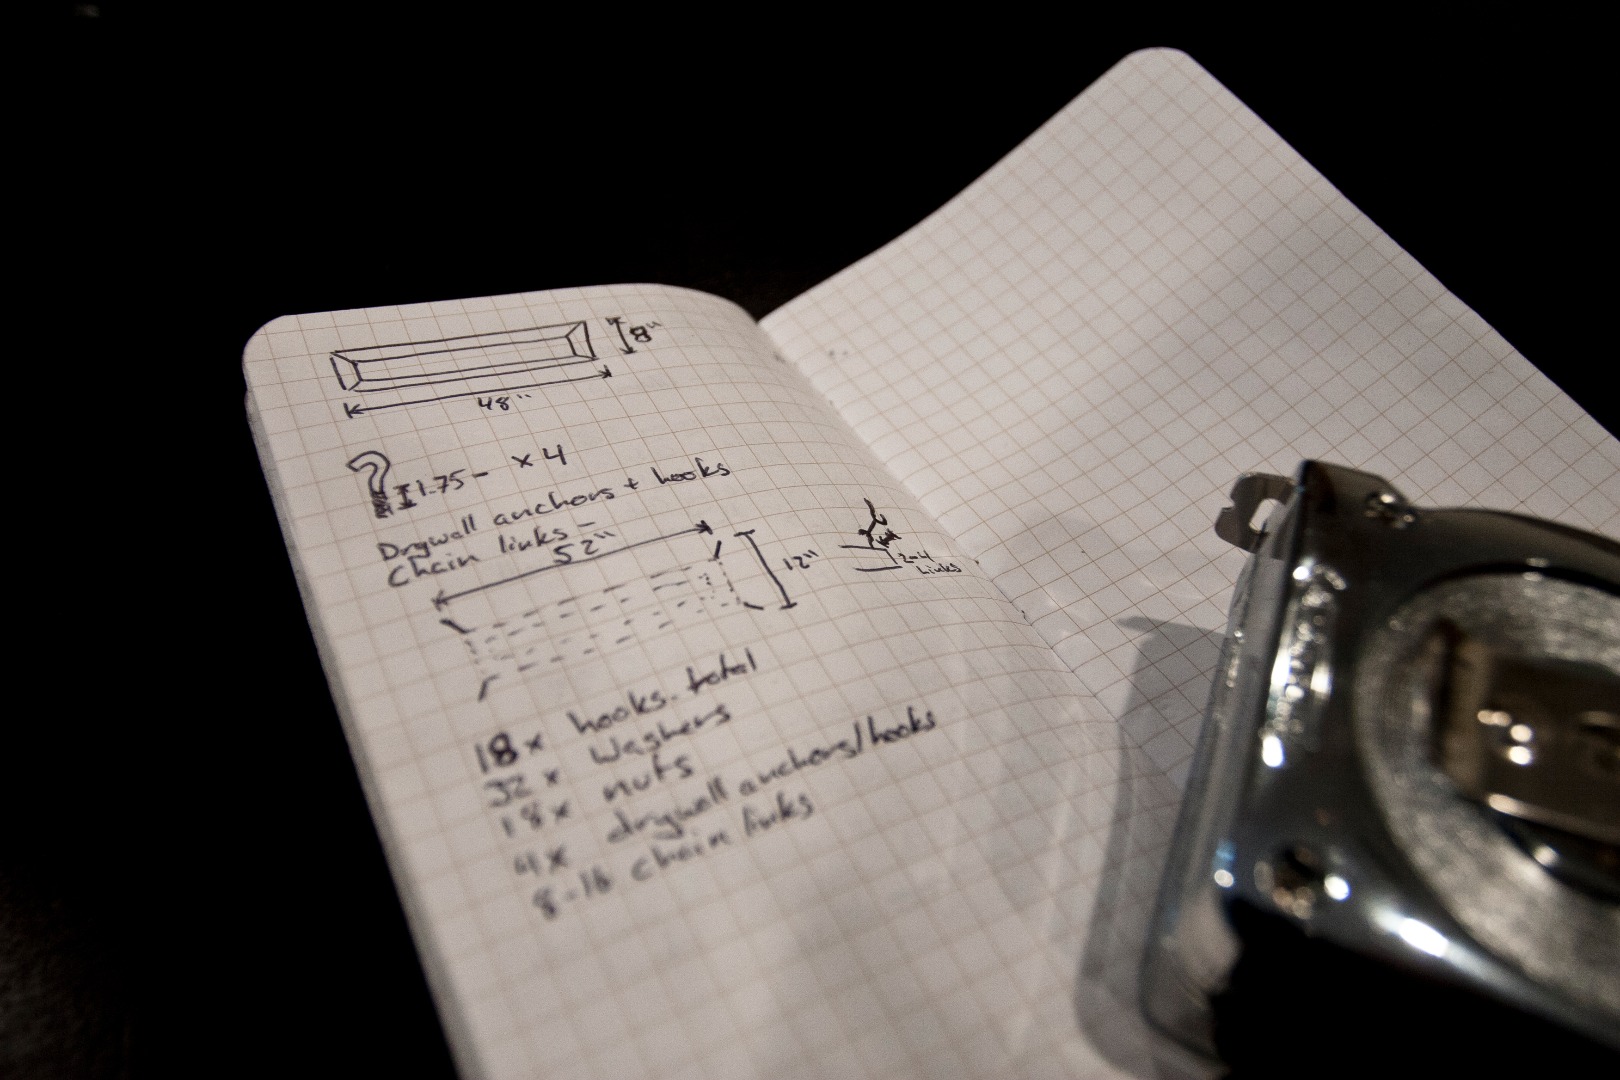 8"
48"
1.75- x 4
Drywall anchors + hooks
Chain links -
52"
12"
2-4
Links
18x hooks - total
32x washers
18x nuts
4x drywall anchors/hooks
8-16 chain links